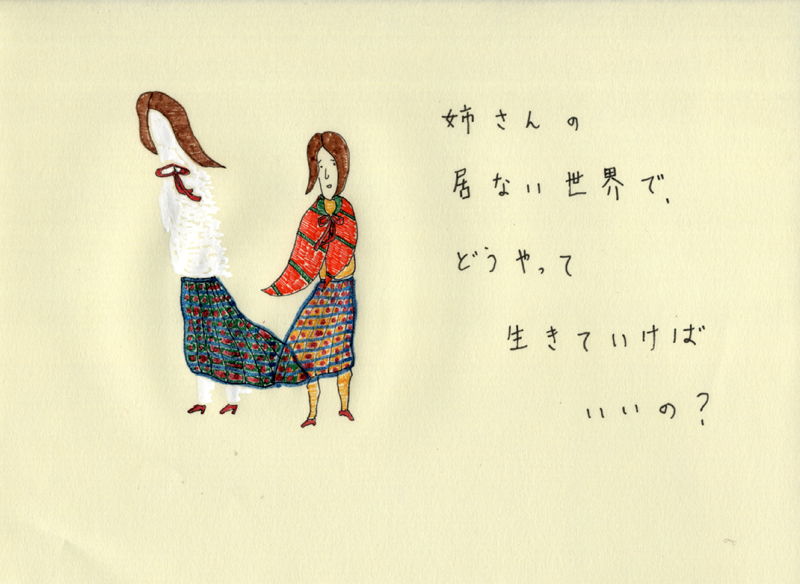 姉さんの
居ない世界で、
どうやって
生きていけば
いいの?